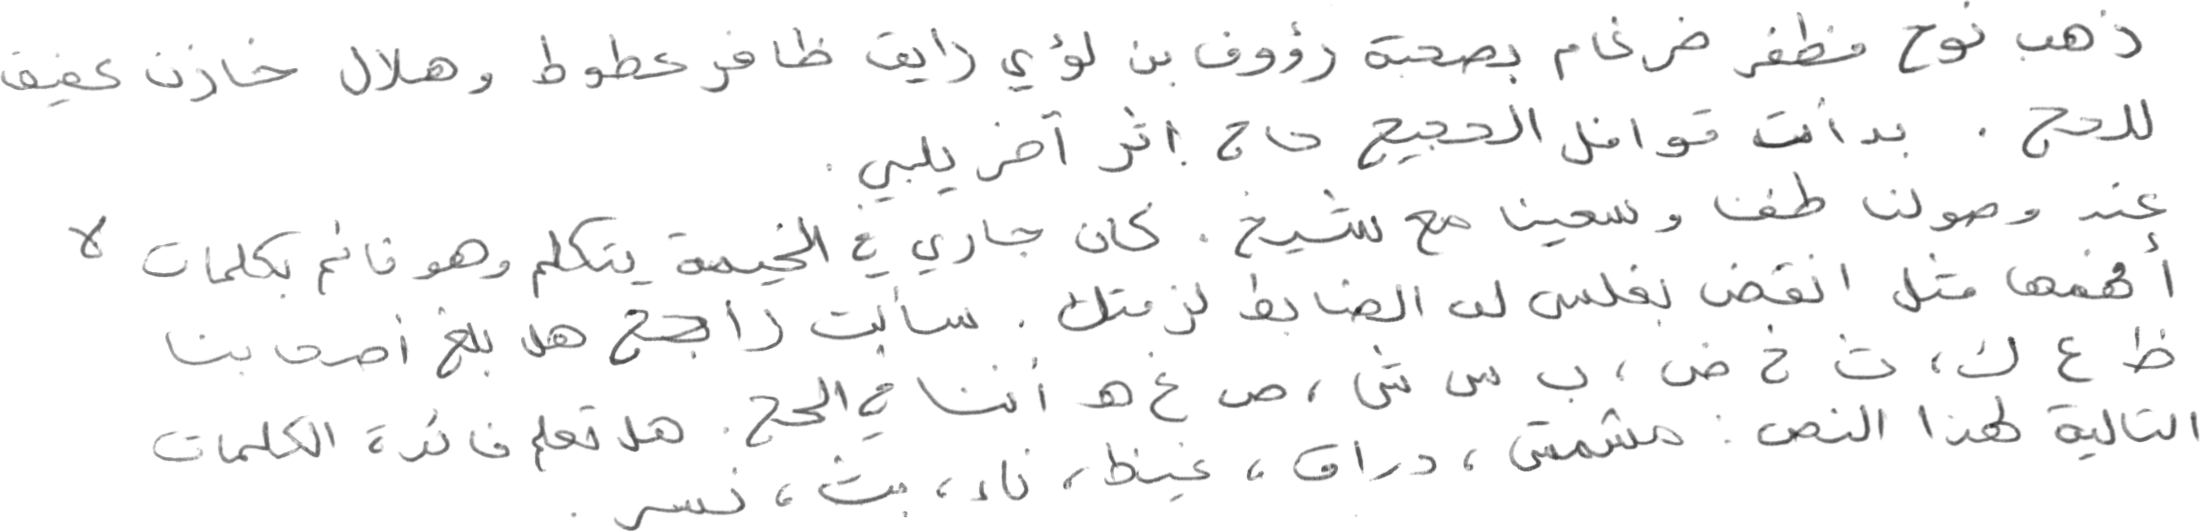 ذهب نوح مظفر ضرغام بصحبة رؤوف بن لؤي رايق ظافر عطوط وهلال خازن عفيف
للحج . بدأت قوافل الحجيج حاج إثر آخر يلبي .
عند وصولنا طفنا وسعينا مع شيخ . كان جاري في الخيمة يتكلم وهو نائم بكلمات لا
أفهمها مثل انقض بفلس لف الضابط لزمتك . سألت راجح هل بلغ أصحابنا
ظ ع ك ، ث خ ض ، ب س ش ، ص غ هـ أننا في الحج . هل تعلم فائدة الكلمات
التالية لهذا النص : مشمش ، دراق ، غيظ ، ناء ، بث ، نسر .